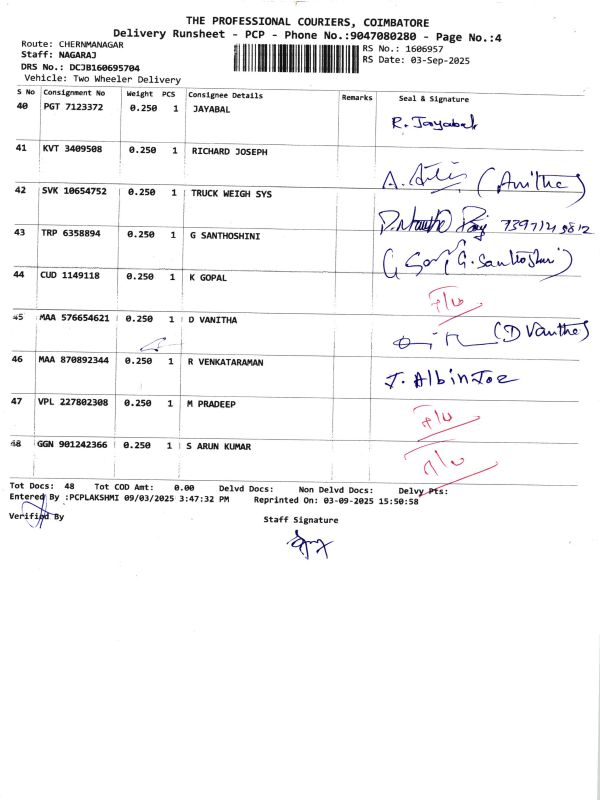 THE PROFESSIONAL COURIERS, COIMBATORE
Delivery Runsheet - PCP - Phone No.:9047080280 - Page No.:4
Route: CHERNMANAGAR
Staff: NAGARAJ
DRS No.: DCJB160695704
Vehicle: Two Wheeler Delivery
RS No.: 1606957
RS Date: 03-Sep-2025
S No Consignment No Weight PCS Consignee Details Remarks Seal & Signature
40 PGT 7123372 0.250 1 JAYABAL R. Jayabal
41 KVT 3409508 0.250 1 RICHARD JOSEPH (Anitha)
42 SVK 10654752 0.250 1 TRUCK WEIGH SYS
43 TRP 6358894 0.250 1 G SANTHOSHINI (G. Santhoshini)
44 CUD 1149118 0.250 1 K GOPAL
45 MAA 576654621 0.250 1 D VANITHA (D Vanitha)
46 MAA 870892344 0.250 1 R VENKATARAMAN J. Albin Joe
47 VPL 227802308 0.250 1 M PRADEEP
48 GGN 901242366 0.250 1 S ARUN KUMAR
Tot Docs: 48 Tot COD Amt: 0.00 Delvd Docs: Non Delvd Docs: Delvy Pts:
Entered By :PCPLAKSHMI 09/03/2025 3:47:32 PM Reprinted On: 03-09-2025 15:50:58
Verified By
Staff Signature